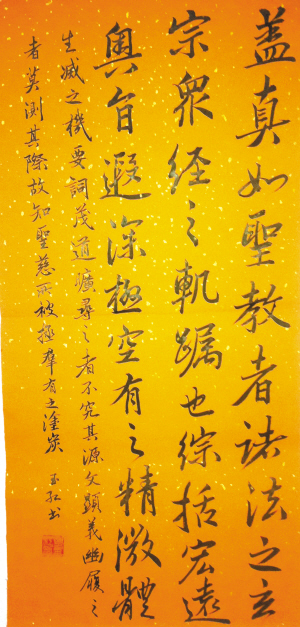 盖真如聖教者諸法之玄
宗眾經之軌躅也綜括宏遠
奧旨遐深極空有之精微體
生滅之機要詞茂道曠尋之者不究其源文顯義幽履之
者莫測其際故知聖慈所被極群有之塗炭
玉紅書